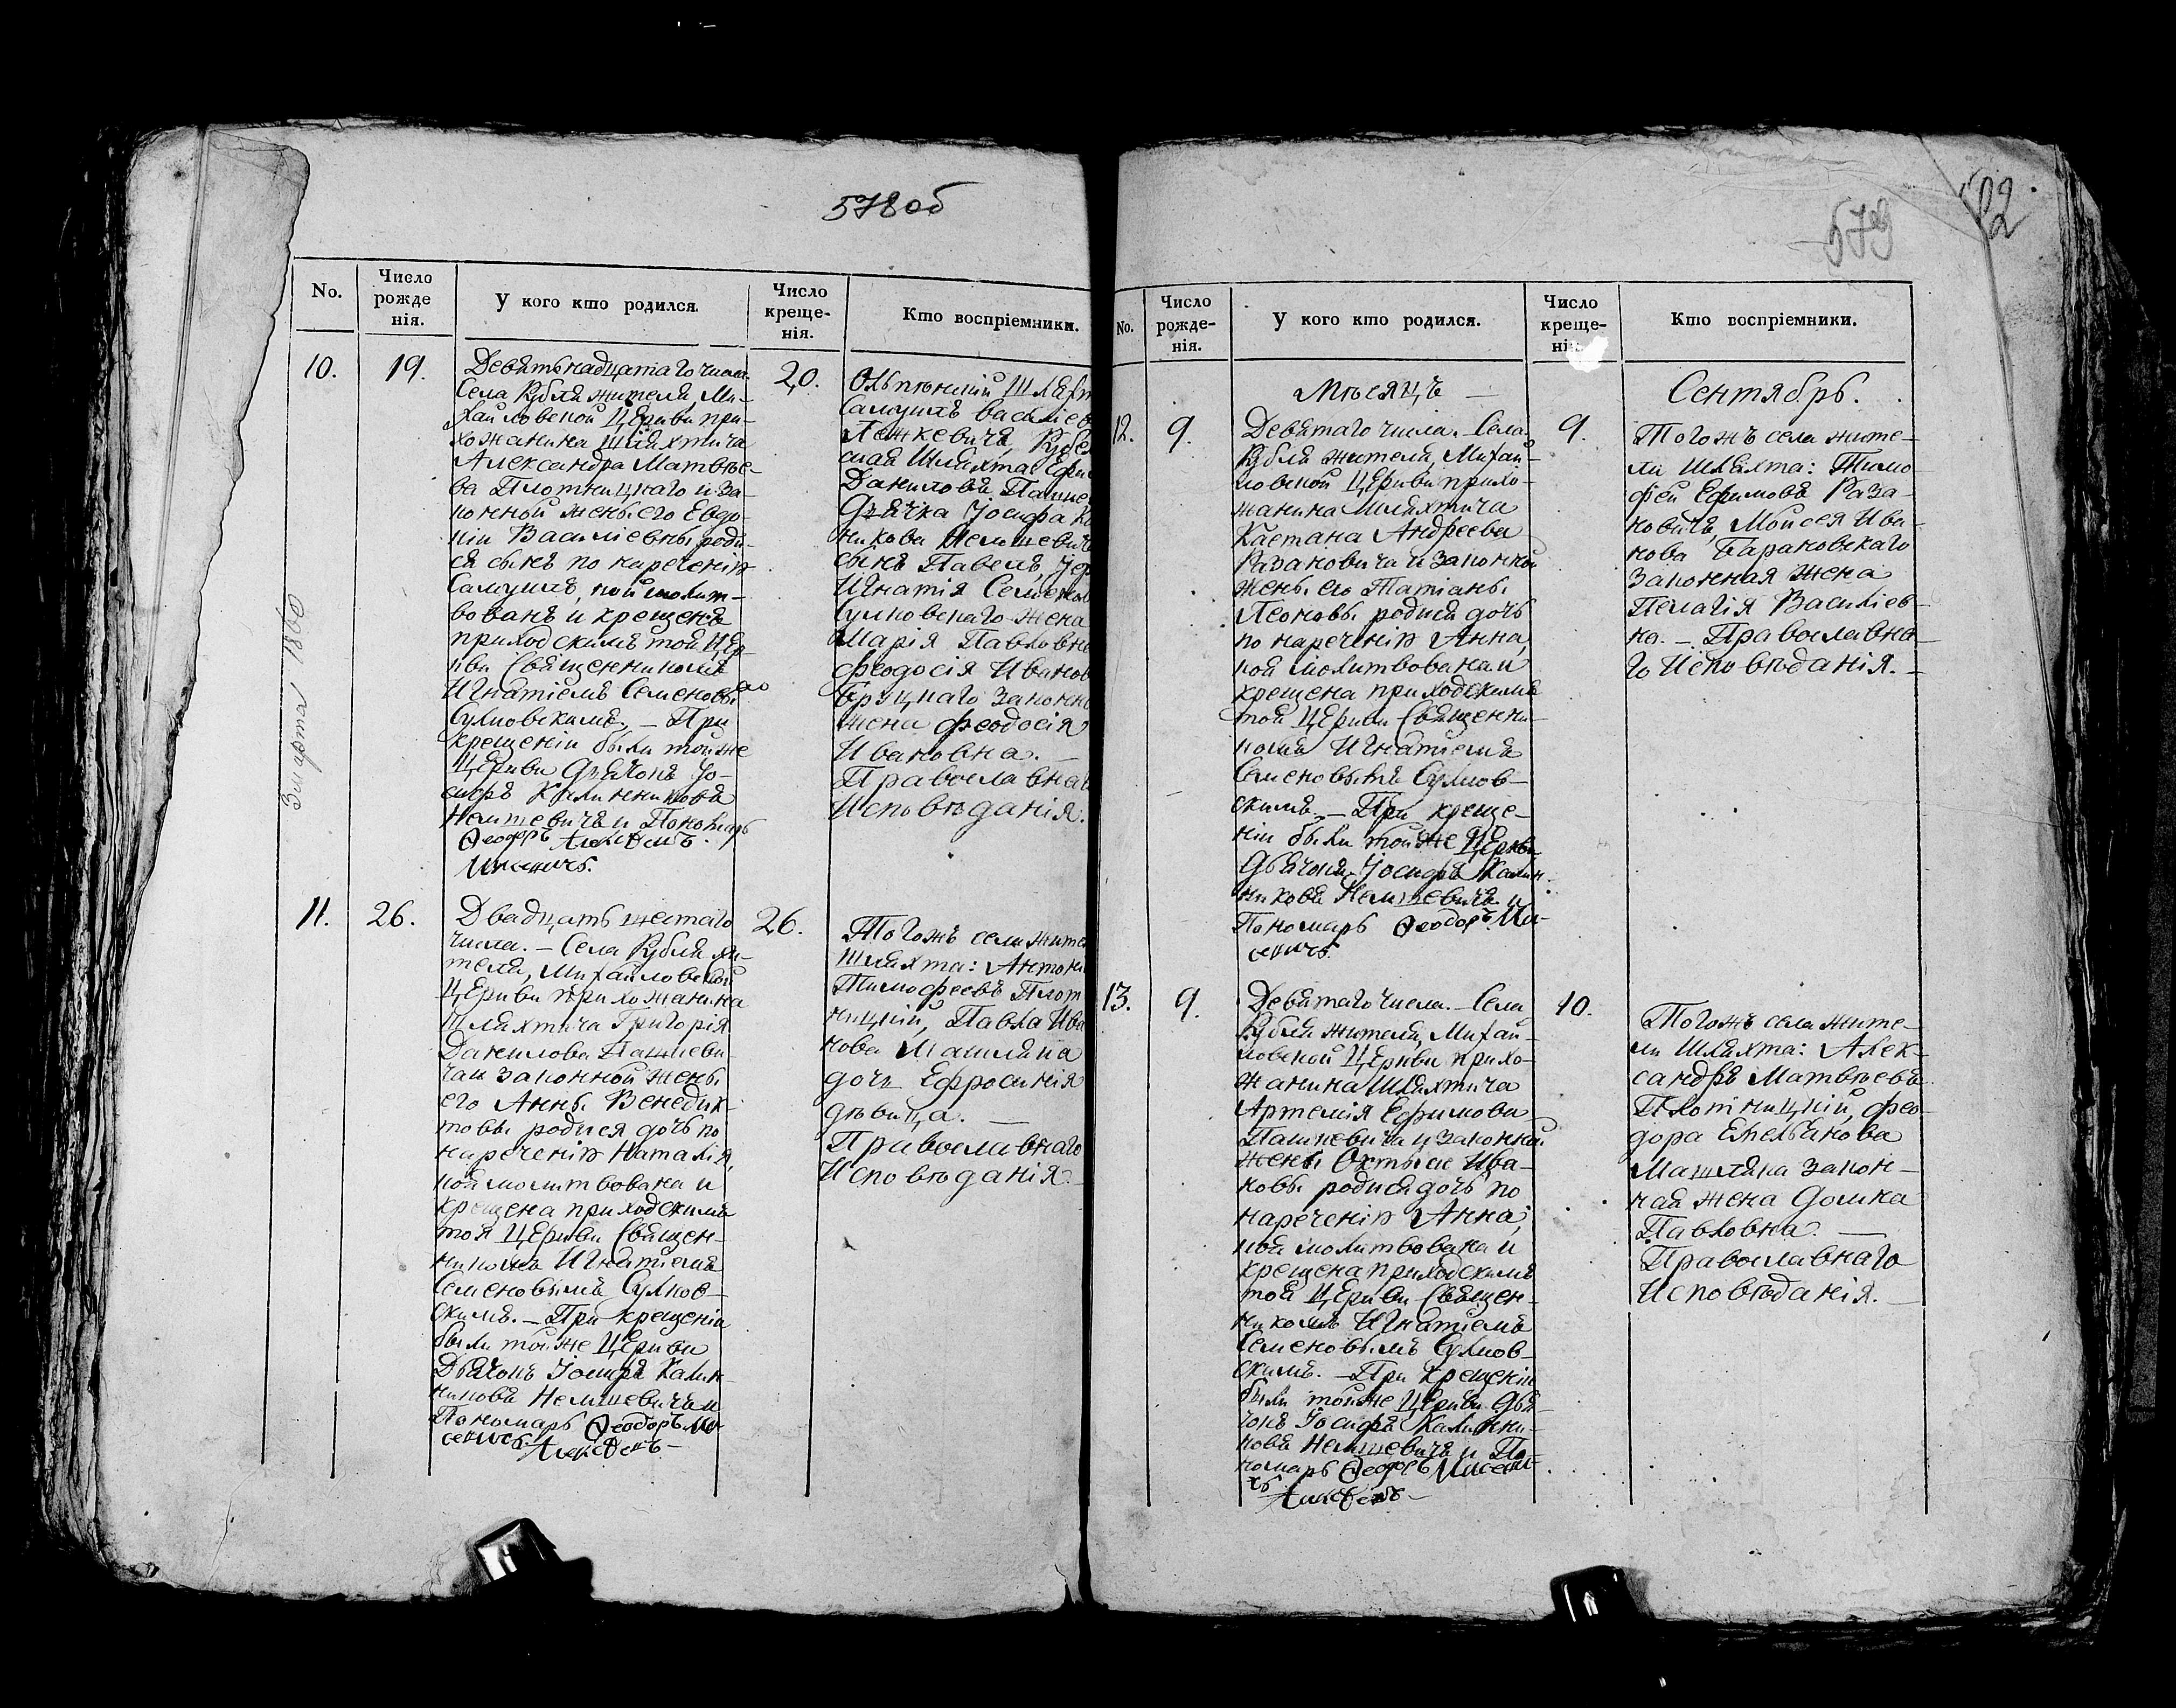 578 об
No.
Число рожде нія.
У кого кто родился.
Число креще- нія.
Кто воспріемники.
10.
19.
Девятьнадцатаго числа.
Села Рубля жителя, Ми-
хайловской Церкви при-
хожанина шляхтича
Александра Матвѣе-
ва Плотницкаго и за-
конной жены его Евдо-
кіи Василіевны роди-
ся сынъ по нареченію
Самуилъ, кой молит-
вованъ и крещенъ
приходскимъ той Цер-
кви Священникомъ
Игнатіемъ Семеновы
Сулковскимъ. – При
крещеніи были той же
Церкви Дьячокъ Іо-
сифъ Калинниковъ
Нелишевичъ и Пономарь
Ѳеодоръ
20.
Ольпѣнскій Шляхт
Самуилъ Василіев
Лежкевичъ, Рубел
ская Шляхта: Ефи
Даниловъ Пашке
Дьячка Іосифа Ка
никова Нелишевича
сынъ Павелъ, Іер
Игнатія Семенов
Сулковскаго жена
Марія Павловна
Феодосія Иванов
законна
жена Феодосія
Ивановна. –
Православнаг
Исповѣданія.
11.
26.
Двадцать шестаго
числа. – Села Рубля жи-
теля, Михайловской
Церкви прихожанина
шляхтича Григорія
Данилова Пашкеви-
ча и законной жены
его Анны Венедик-
товы родися дочь по
нареченію Наталія,
коя молитвована и
крещена приходскимъ
тоя Церкви Священ-
никомъ Игнатіемъ
Семеновымъ Сулков-
скимъ. – При крещеніи
были той же Церкви
Дьячокъ Іосифъ Калин-
никовъ Нелишевичъ и
Пономарь Ѳеодоръ
26.
Тогожъ села жите
шляхта: Антоні
Тимофеевъ Плот
ницкій, Павла Ива
нова Машляка
дочь Ефросинія
дѣвица. –
Православнаго
Исповѣданія.
579
No.
Число рожде- нія.
У кого кто родился.
Число креще- нія.
Кто воспріемники.
Мѣсяцъ –
Сентябрь.
12.
9.
Девятаго числа. Села
Рубля жителя, Михай-
ловской Церкви прихо-
жанина шляхтича
Каетана Андреева
Разановича и законной
жены его Татіаны
Леоновы родися дочь
по нареченію Анна,
коя молитвована и
крещена приходскимъ
той Церкви Священни-
комъ Игнатіемъ
Семеновымъ Сулков-
скимъ. – При креще-
ніи были той же Церкви
Дьячокъ Іосифъ Калин-
никовъ Нелишевичъ и
Пономарь Ѳеодоръ
9.
Тогожъ села жите-
ли шляхта: Тимо-
фей Ефимовъ Раза-
новичъ, Моисея Ива-
нова Барановскаго
законная жена
Пелагія Василіев-
на. – Православна-
го Исповѣданія. –
13.
9.
Девятаго числа. – Села
Рубля жителя, Михай-
ловской Церкви прихо-
жанина шляхтича
Артемія Ефимова
Пашкевича и законной
жены Ива-
новы родися дочь по
нареченію Анна,
коя молитвована и
крещена приходскимъ
той Церкви Священ-
никомъ Игнатіемъ
Семеновымъ Сулков-
скимъ. – При крещеніи
были той же Церкви Дья-
чокъ Іосифъ Калинни-
ковъ Нелишевичъ и По-
номарь Ѳеодоръ
10.
Тогожъ села жите-
ли шляхта: Алек-
сандръ Матвѣевъ
Плотницкій, Фео-
дора Емельянова
Машляка закон-
ная жена Домка
Павловна. –
Православнаго
Исповѣданія. –